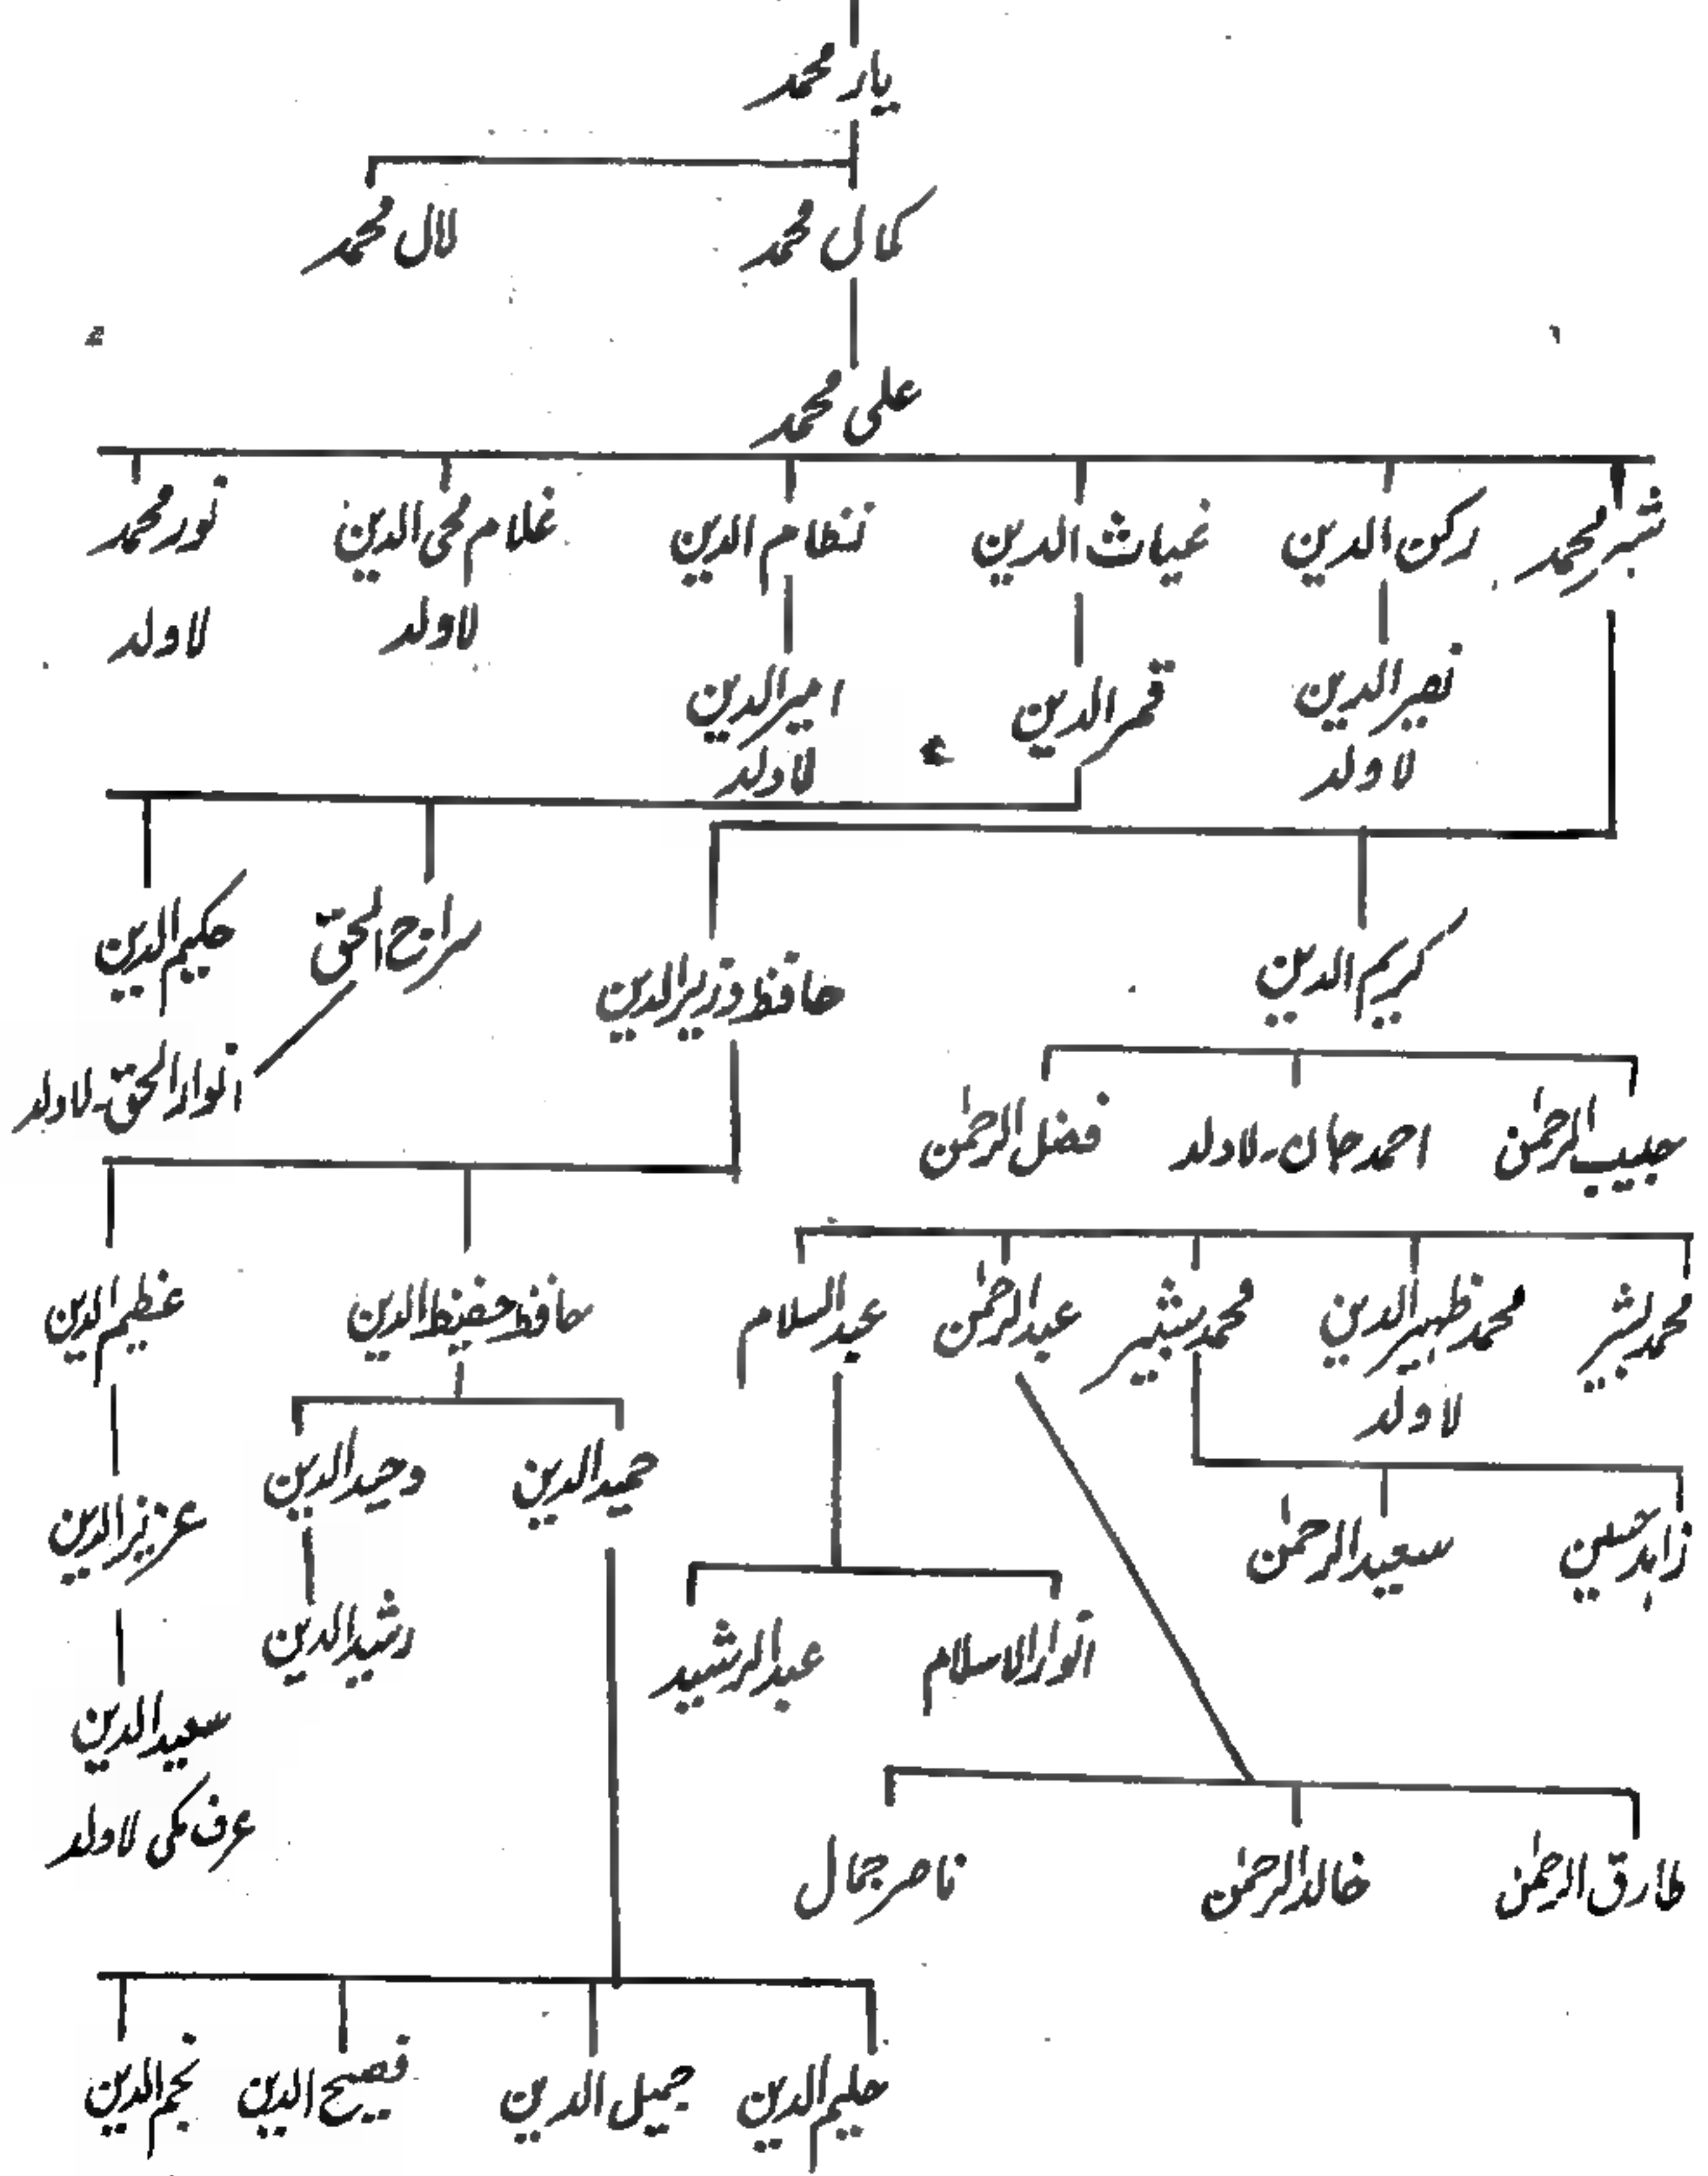 یار محمد
کمال محمد لال محمد
علی محمد
شیر محمد رکن الدین غیاث الدین نظام الدین غلام محی الدین نور محمد
لاولد لاولد
نصیر الدین قمر الدین امیر الدین
لاولد لاولد
کریم الدین حافظ وزیر الدین سراج الحق حکیم الدین
انوار الحق۔ لاولد
حبیب الرحمٰن احمد جان۔ لاولد فضل الرحمٰن
محمد بشیر محمد ظہیر الدین محمد شبیر عبد الرحمٰن عبد السلام حافظ حفیظ الدین عظیم الدین
لاولد
حمید الدین وحید الدین
زاہد حسین سعید الرحمٰن عزیز الدین
انوار الاسلام عبد الرشید رشید الدین
سعید الدین
عرف مکی لاولد
طارق الرحمٰن خالد الرحمٰن ناصر جمال
حلیم الدین جمیل الدین فصیح الدین نجم الدین